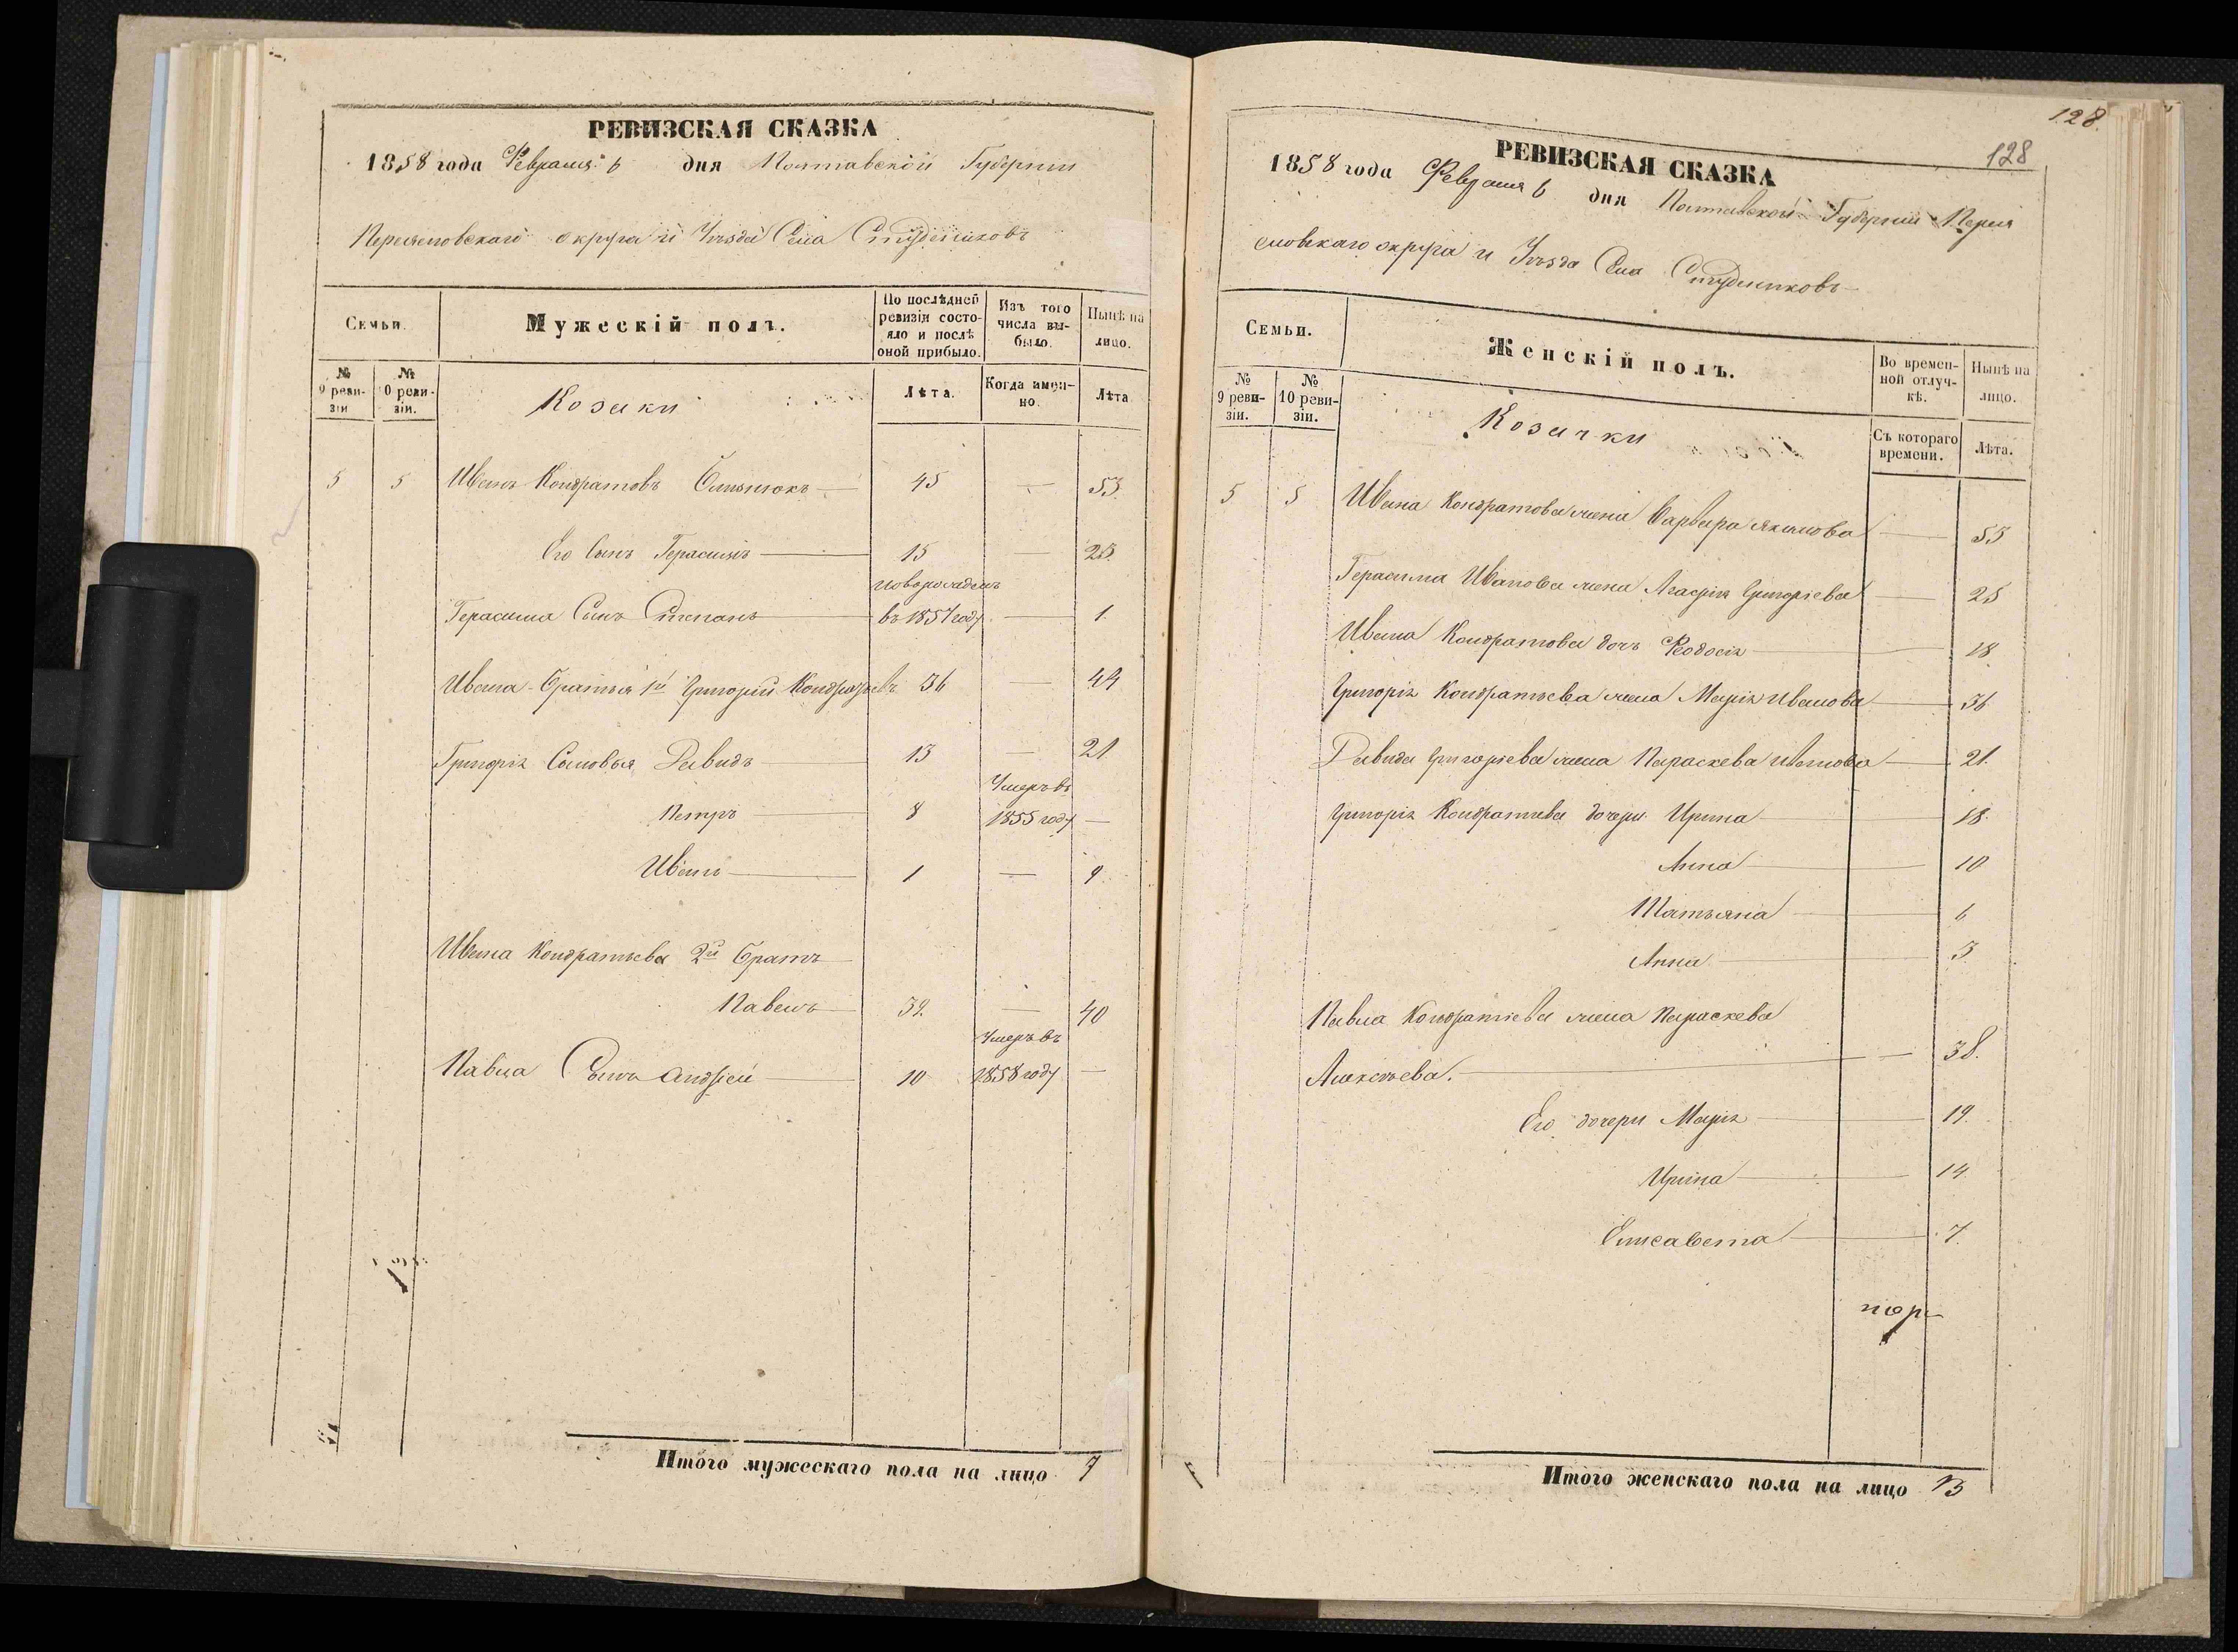 РЕВИЗСКАЯ СКАЗКА
1858 года Февраля 6 дня Полтавской Губернии
Переяславскаго округа и Уѣзда Села Студениковъ
Семьи.
Мужескій полъ.
По послѣдней ревизіи состояло и послѣ оной прибыло.
Изъ того числа выбыло.
Нынѣ на лицо.
№ 9 ревизіи
№ 10 ревизіи.
Козаки
Лѣта.
Когда именно.
Лѣта
5 5 Иванъ Кондратовъ 45 — 53.
Его Сынъ Герасимъ 15 — 23.
Герасима Сынъ Степанъ новорожденъ въ 1857 году — 1.
Ивана Братья 1й Григорий Кондратьевъ 36 — 44
Григорія Сыновья Давидъ 13 — 21
Петръ 8 Умеръ въ 1855 году —
Иванъ 1 — 9.
Ивана Кондратьева 2й Братъ
Павелъ 32. — 40
Павла Сынъ Андрей 10 Умеръ въ 1858 году —
Итого мужескаго пола на лицо 7
128.
128
РЕВИЗСКАЯ СКАЗКА
1858 года Февраля 6 дня Полтавской Губернии Перея
славскаго округа и Уѣзда Села Студениковъ
Семьи.
Женскій полъ.
Во временной отлучкѣ.
Нынѣ на лицо.
№ 9 ревизіи.
№ 10 ревизіи.
Козачки
Съ котораго времени.
Лѣта.
5 5 Ивана Кондратова жена Варвара Якимова — 53
Герасима Иванова жена Агафія Григорьева — 25
Ивана Кондратова дочь Феодосія 18
Григорія Кондратьева жена Марія Иванова 36
Давида Григорьева жена Параскева Иванова 21.
Григорія Кондратьева дочери Ирина 18.
Анна 10
Татьяна 6
Анна 3
Павла Кондратьева жена Параскева
Алексѣева. — 38.
Его дочери Марія 19.
Ирина 14.
Елисавета 7.
Итого женскаго пола на лицо 13